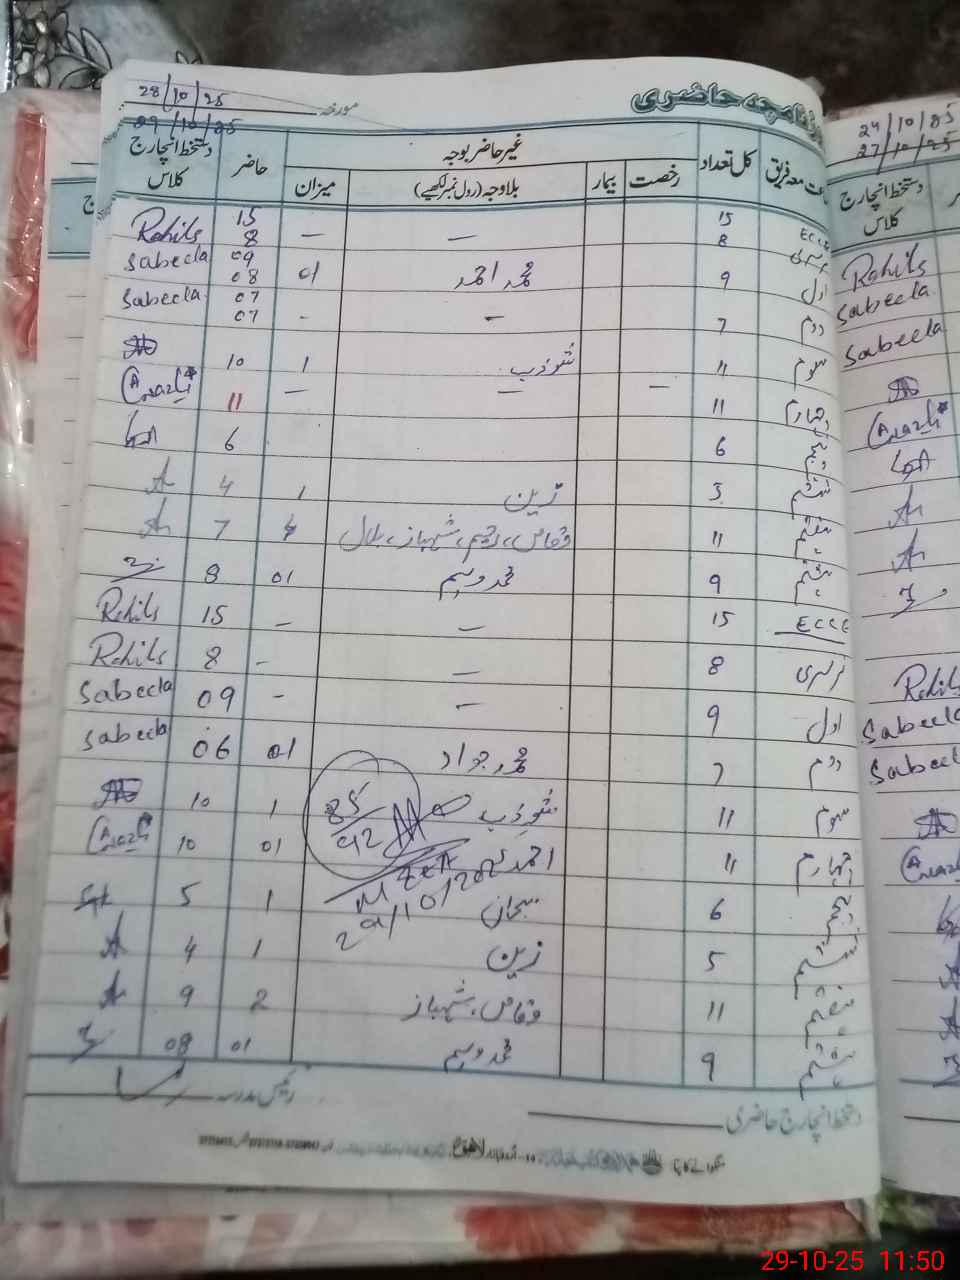 روزنامچہ حاضری
مورخہ 28/10/25
29/10/25
جماعت معہ فریق کل تعداد غیر حاضر بوجہ حاضر دستخط انچارج کلاس
رخصت بیمار بلاوجہ (رول نمبر لکھیے) میزان
ECCE 15 — — 15 Rahila
نرسری 8 8
اول 9 محمد احمد 01 09 08 Sabeela
دوم 7 - - 07 07 Sabeela
سوم 11 شوذب 1 10
چہارم 11 — — — 11
پنجم 6 6
ششم 5 زین 1 4 A
ہفتم 11 وقاص، رحیم، شہباز، بلال 4 7 A
ہشتم 9 محمد وسیم 01 8
ECCE 15 — - 15 Rahila
نرسری 8 — - 8 Rahila
اول 9 - - 09 Sabeela
دوم 7 محمد جواد 01 06 Sabeela
سوم 11 شوذب 1 10
85/92
چہارم 11 احمد 01 10
29/10/2025
پنجم 6 سبحان 1 5
ششم 5 زین 1 4 A
ہفتم 11 وقاص، شہباز 2 9 A
ہشتم 9 محمد وسیم 01 08
دستخط انچارج حاضری
رئیس مدرسہ
24/10/25
27/10/25
دستخط انچارج کلاس
Rahila
Sabeela
Sabeela
A
A
Rahila
Sabeela
Sabeela
A
A
29-10-25 11:50